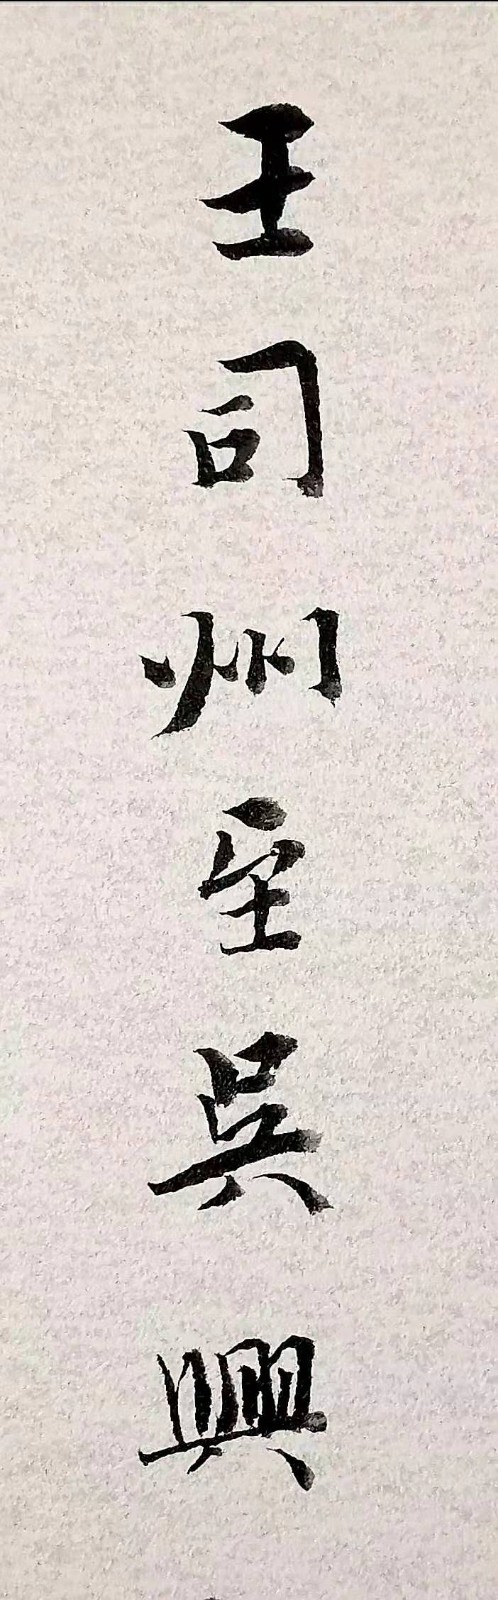 王司州至吳興